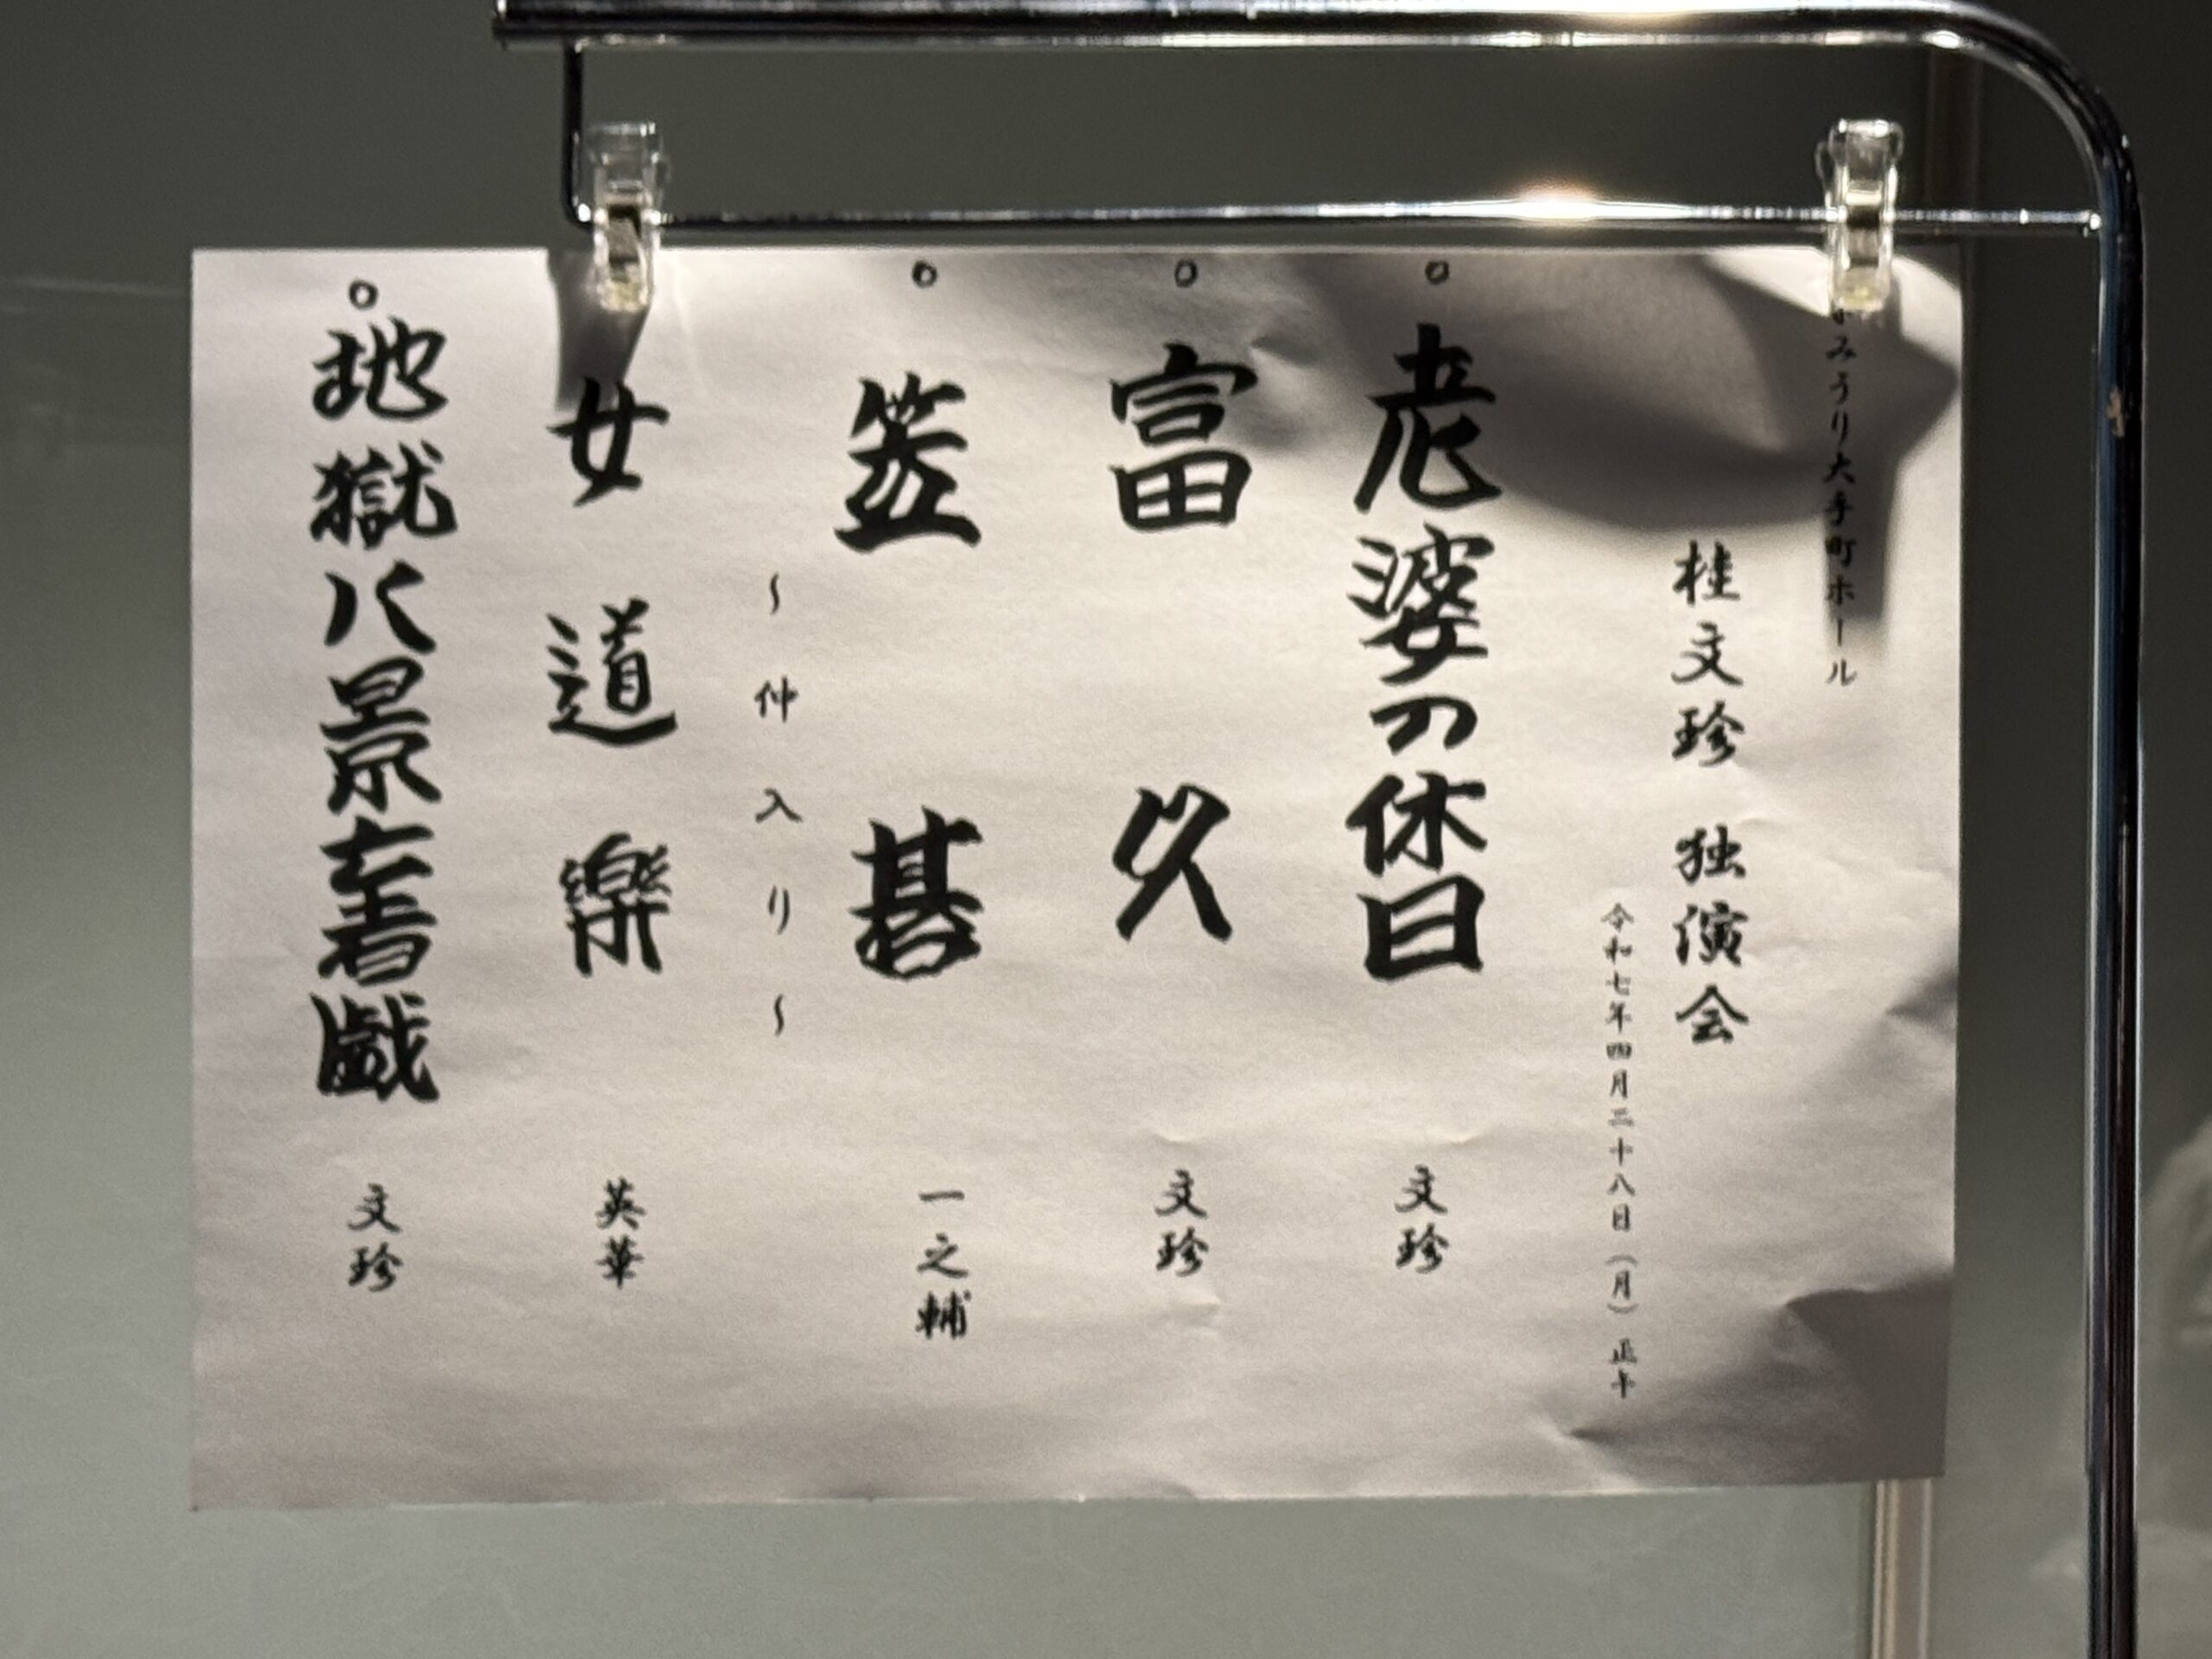 みうり大手町ホール
桂文珍 独演会
令和七年四月二十八日(月) 正午
○老婆の休日 文珍
○富久 文珍
○笠碁 一之輔
~仲入り~
女道楽 英華
○地獄八景亡者戯 文珍